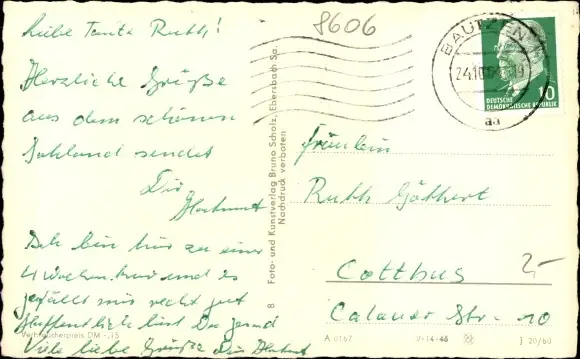 8606
Liebe Tante Ruth!
Herzliche Grüße
aus dem schönen
Sohland sendet
Dir
Hartmut
Ich bin hier zu einer
4 Wochen und es
gefällt mir recht gut
Hoffentlich bist Du gesund
Viele liebe Grüße Dein Hartmut
Verbraucherpreis DM -,15
8 Foto- und Kunstverlag Bruno Scholz, Ebersbach Sa.
Nachdruck verboten
BAUTZEN
24.10
aa
10
DEUTSCHE
DEMOKRATISCHE REPUBLIK
Fräulein
Ruth Göthert
Cottbus
2,-
Calauer Str. 10
A 0167 V-14-46 J 20/60